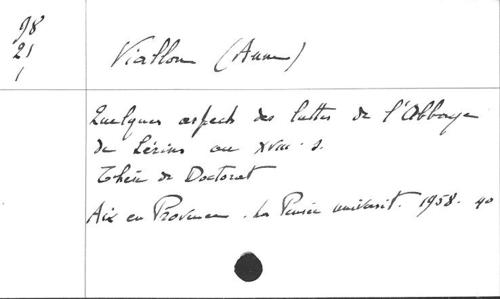 98
21
1
Viallon (Anne)
Quelques aspects des luttes de l'Abbaye
de Lérins au XVIII s.
Thèse de Doctorat
Aix en Provence. La Pensée universit. 1958. 4o